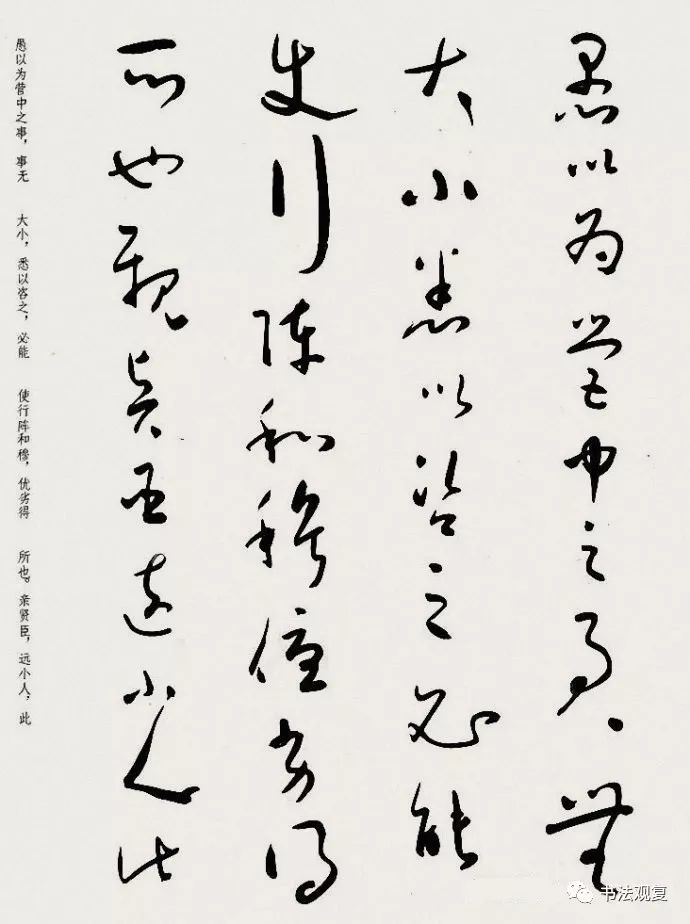 愚以為營中之事、無
大小悉以咨之必能
使行陣和穆優劣得
所也親賢臣遠小人此
愚以为营中之事，事无 大小，悉以咨之，必能 使行阵和穆，优劣得 所也。亲贤臣，远小人，此
书法观复